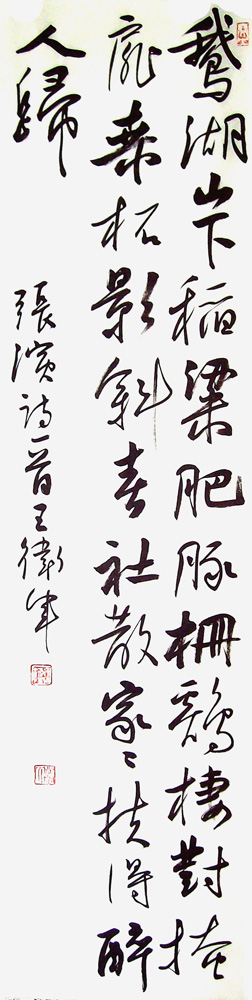 鵝湖山下稻粱肥豚柵鷄棲對掩
扉桑柘影斜春社散家〻扶得醉
人歸
張演詩一首王衛軍